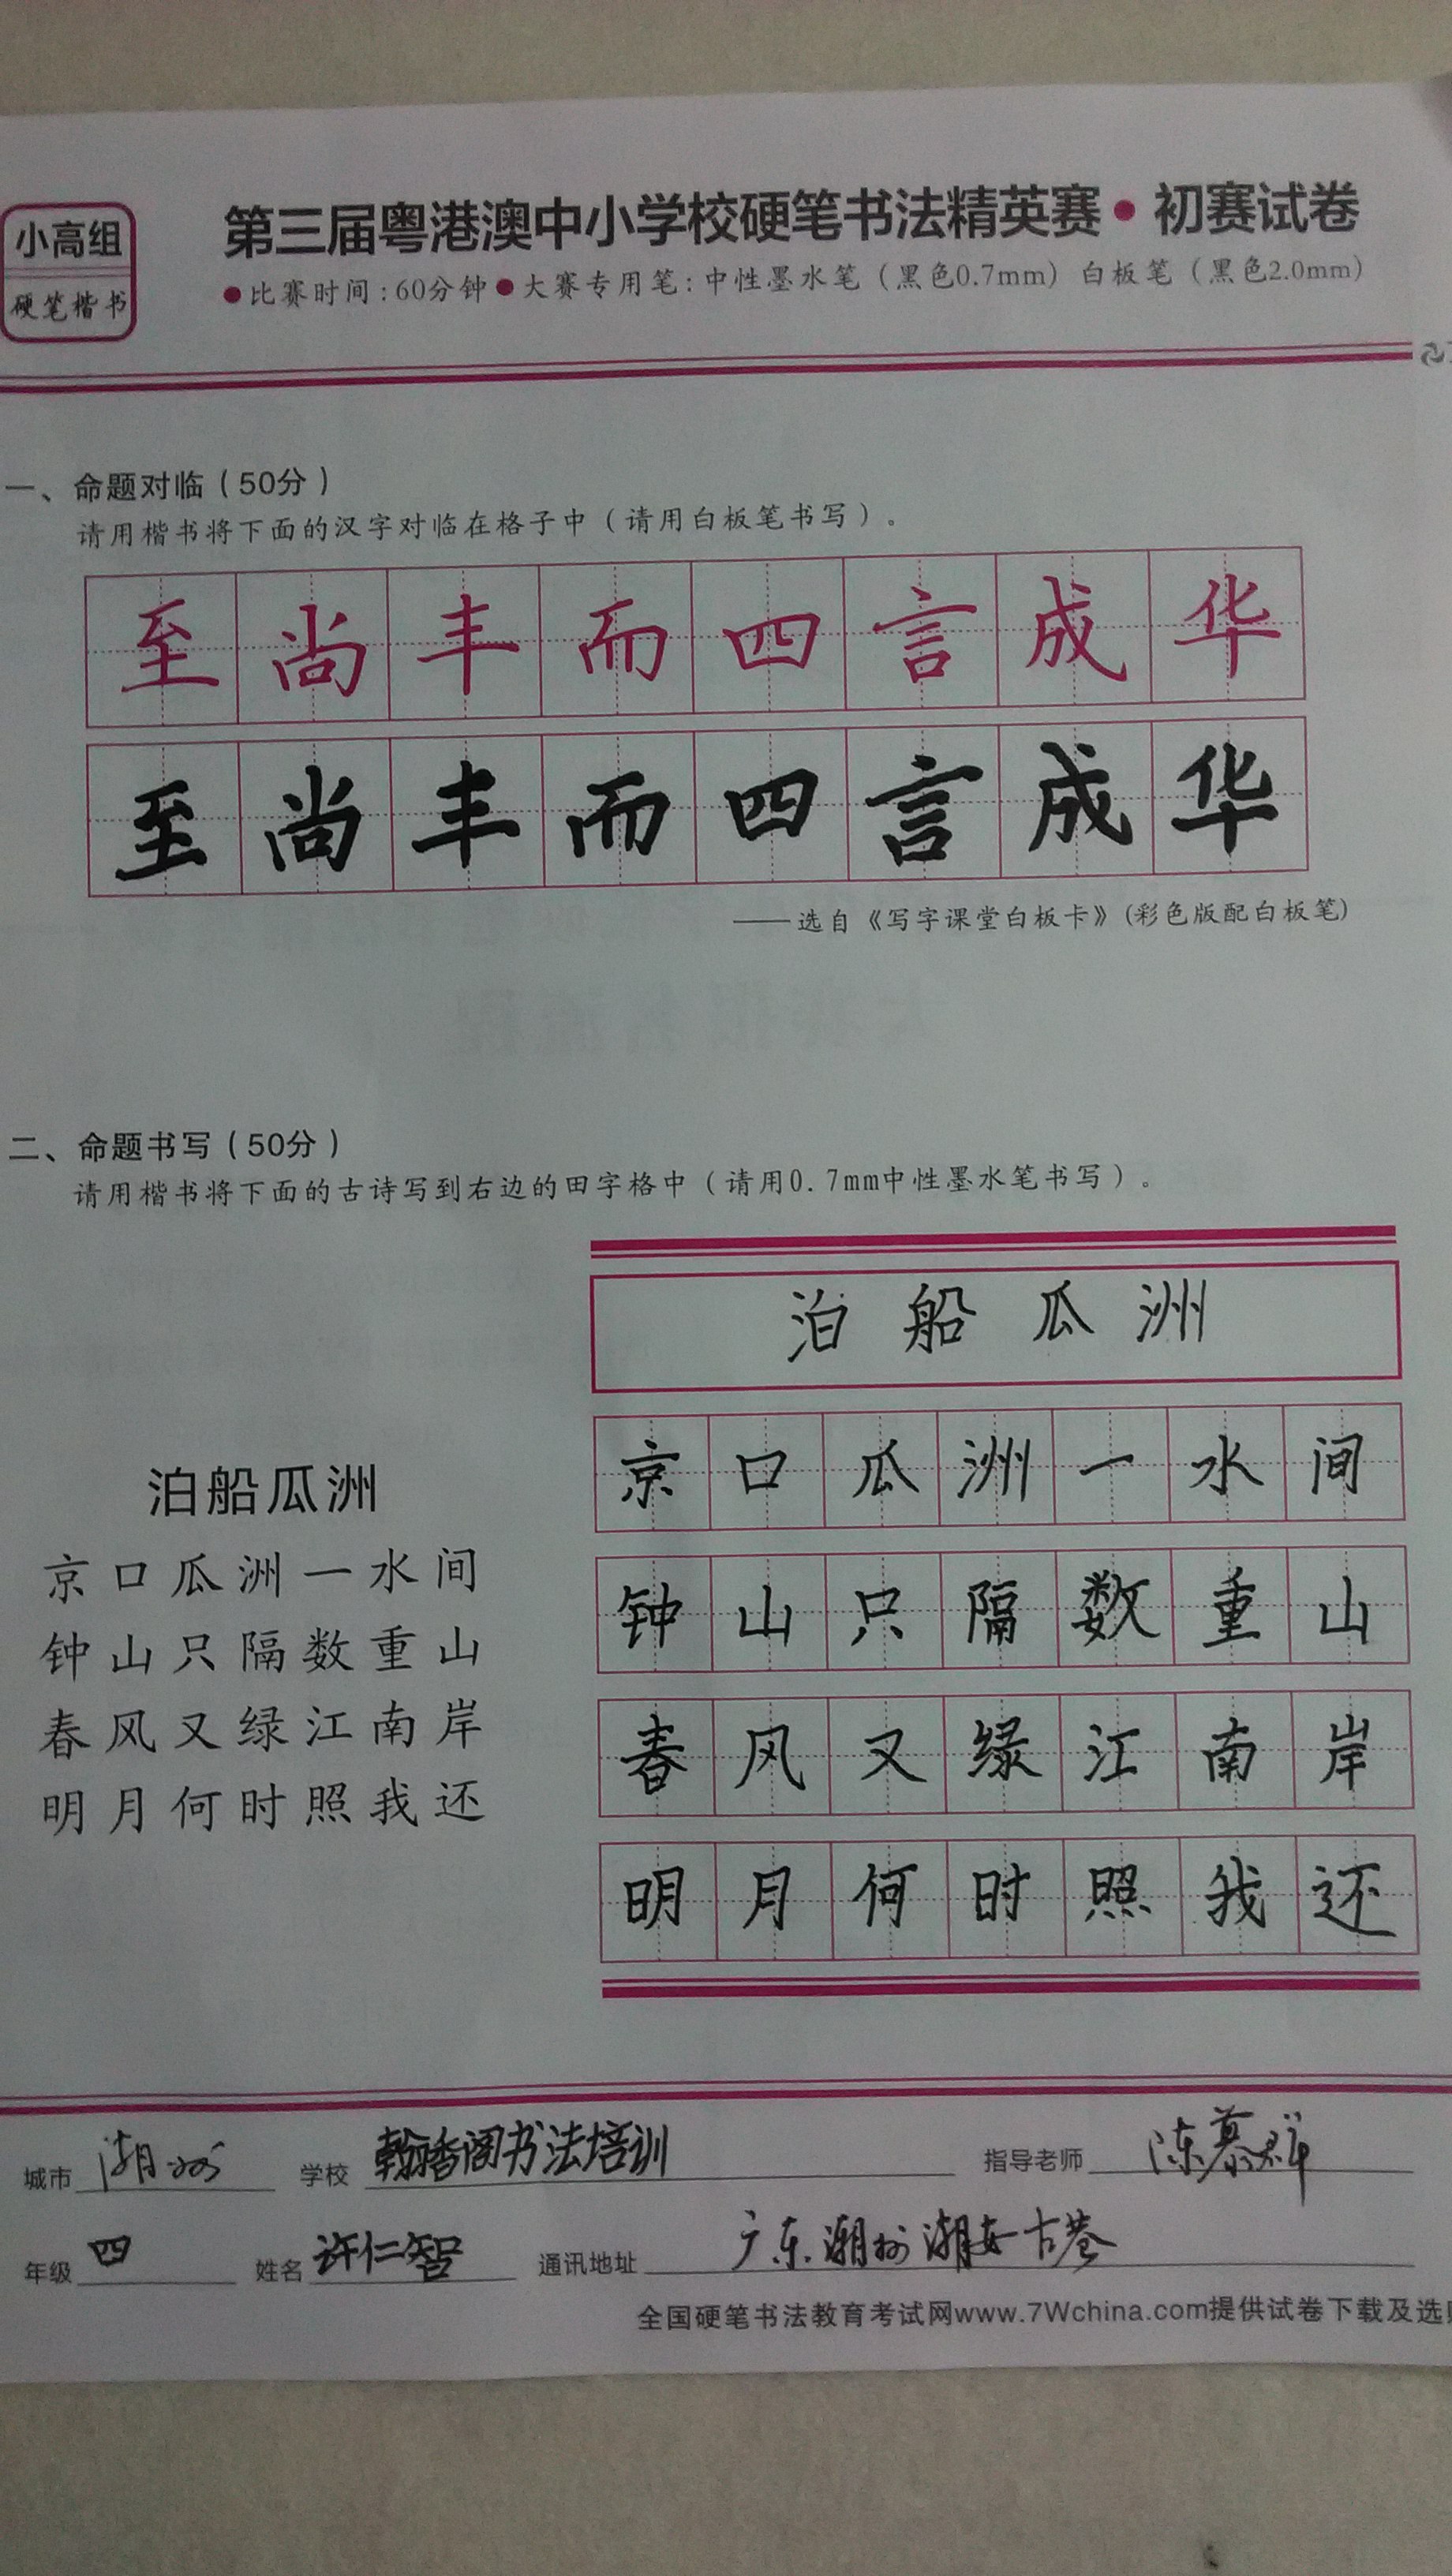 小高组
硬笔楷书
第三届粤港澳中小学校硬笔书法精英赛•初赛试卷
●比赛时间:60分钟●大赛专用笔:中性墨水笔（黑色0.7mm）白板笔（黑色2.0mm）
一、命题对临（50分）
请用楷书将下面的汉字对临在格子中（请用白板笔书写）。
至尚丰而四言成华
至尚丰而四言成华
——选自《写字课堂白板卡》(彩色版配白板笔)
二、命题书写（50分）
请用楷书将下面的古诗写到右边的田字格中（请用0.7mm中性墨水笔书写）。
泊船瓜洲
京口瓜洲一水间
钟山只隔数重山
春风又绿江南岸
明月何时照我还
泊船瓜洲
京口瓜洲一水间
钟山只隔数重山
春风又绿江南岸
明月何时照我还
城市 潮州 学校 翰香阁书法培训 指导老师 陈慕群
年级 四 姓名 许仁智 通讯地址 广东潮州潮安古巷
全国硬笔书法教育考试网www.7Wchina.com提供试卷下载及选